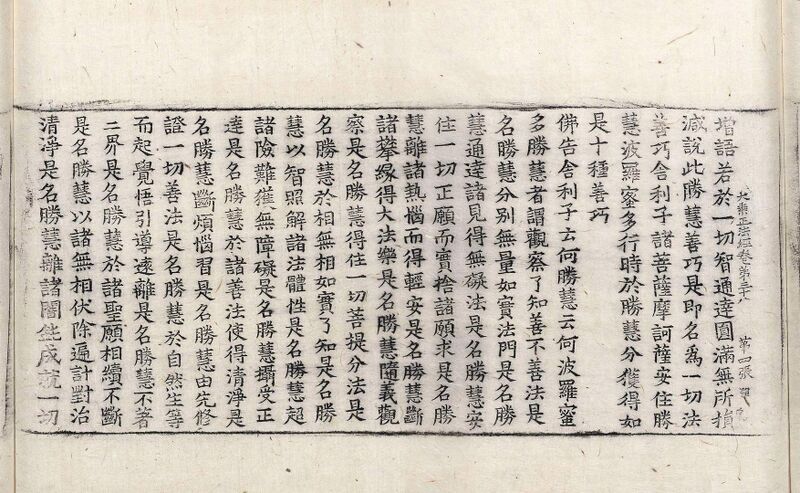 大乘正法經卷第三十八 第四張
增語若於一切智通達圓滿無所損
減說此勝慧善巧是即名為一切法
善巧舍利子諸菩薩摩訶薩安住勝
慧波羅蜜多行時於勝慧分獲得如
是十種善巧
佛告舍利子云何勝慧云何波羅蜜
多勝慧者謂觀察了知善不善法是
名勝慧分別無量如實法門是名勝
慧通達諸見得無礙法是名勝慧安
住一切正願而實捨諸願求是名勝
慧離諸熱惱而得輕安是名勝慧斷
諸攀緣得大法樂是名勝慧隨義觀
察是名勝慧得住一切菩提分法是
名勝慧於相無相如實了知是名勝
慧以智照解諸法體性是名勝慧超
諸險難獲無障礙是名勝慧攝受正
達是名勝慧於諸善法使得清淨是
名勝慧斷煩惱習是名勝慧由先修
證一切善法是名勝慧於自然生等
而起覺悟引導遠離是名勝慧不著
三界是名勝慧於諸聖願相續不斷
是名勝慧以諸無相伏除遍計對治
清淨是名勝慧離諸闇能成就一切